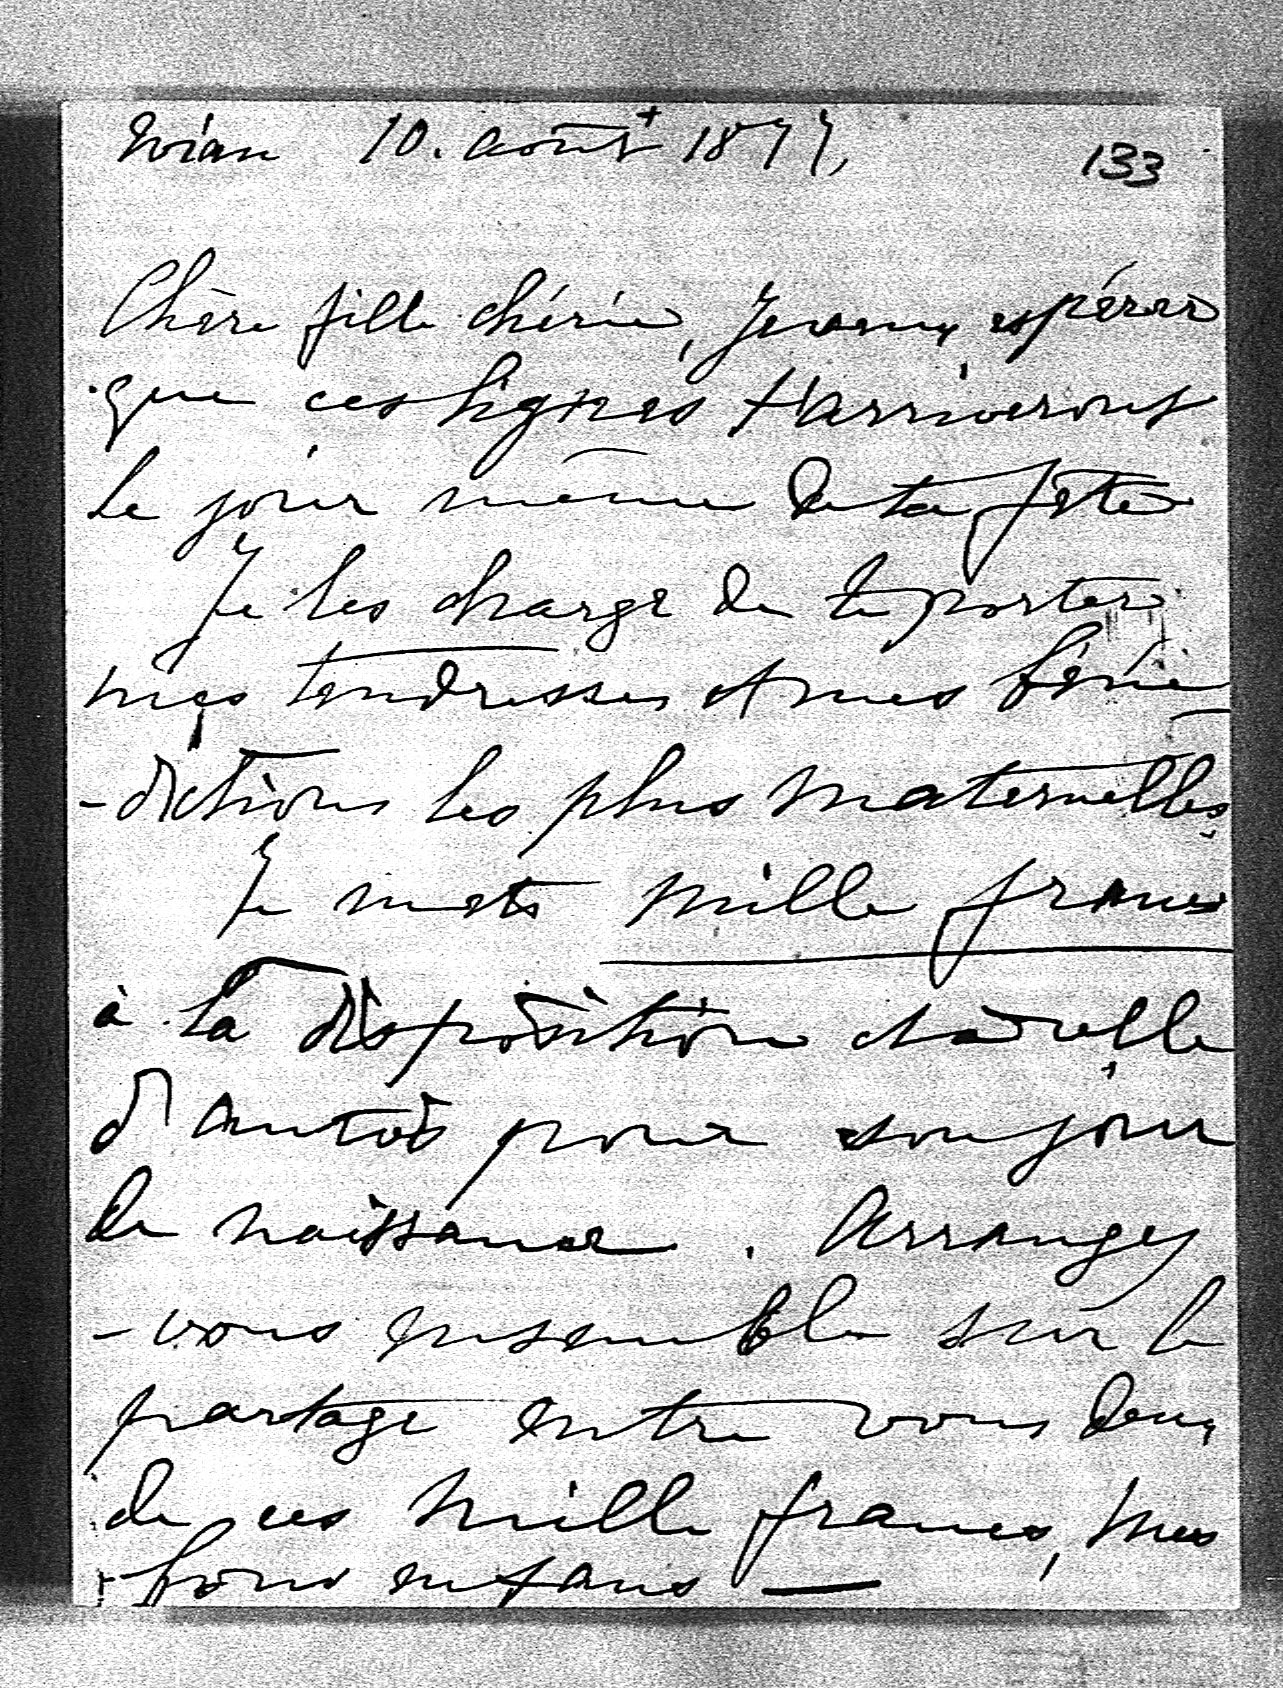 Evian 10. août 1877,
133
Chère fille chérie, Je veux espérer
que ces lignes t'arriveront
le jour même de ta fête
Je les charge de te porter
mes tendresses et mes béné
-dictions les plus maternelles,
Je mets mille francs
à ta disposition et à celle
d'Antoś pour son jour
de naissance. Arrangez
-vous ensemble sur le
partage entre vous deux
de ces mille francs, mes
bons enfans —